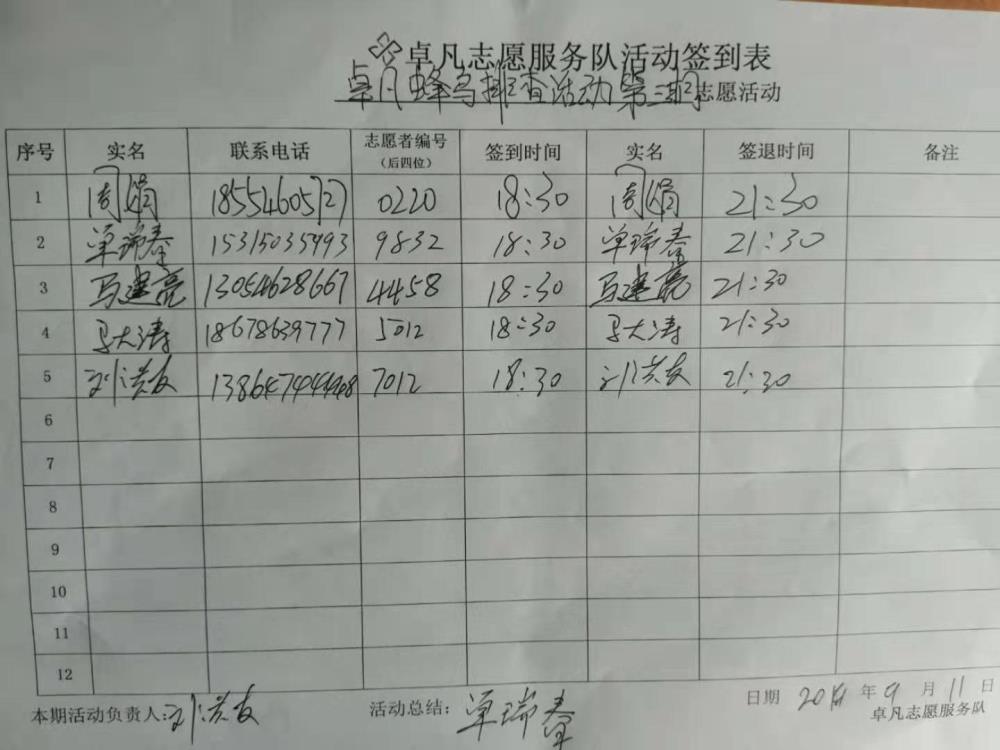 卓凡志愿服务队活动签到表
卓凡蜂鸟排查活动第三期志愿活动
序号 实名 联系电话 志愿者编号(后四位) 签到时间 实名 签退时间 备注
1 周娟 18554605727 0220 18:30 周娟 21:30
2 卓瑞春 15315035993 9832 18:30 卓瑞春 21:30
3 马建亮 13054628667 4458 18:30 马建亮 21:30
4 马大涛 18678639777 5012 18:30 马大涛 21:30
5 刘洪友 7012 18:30 刘洪友 21:30
6
7
8
9
10
11
12
本期活动负责人:刘洪友 活动总结:卓瑞春 日期 年9月11日
卓凡志愿服务队